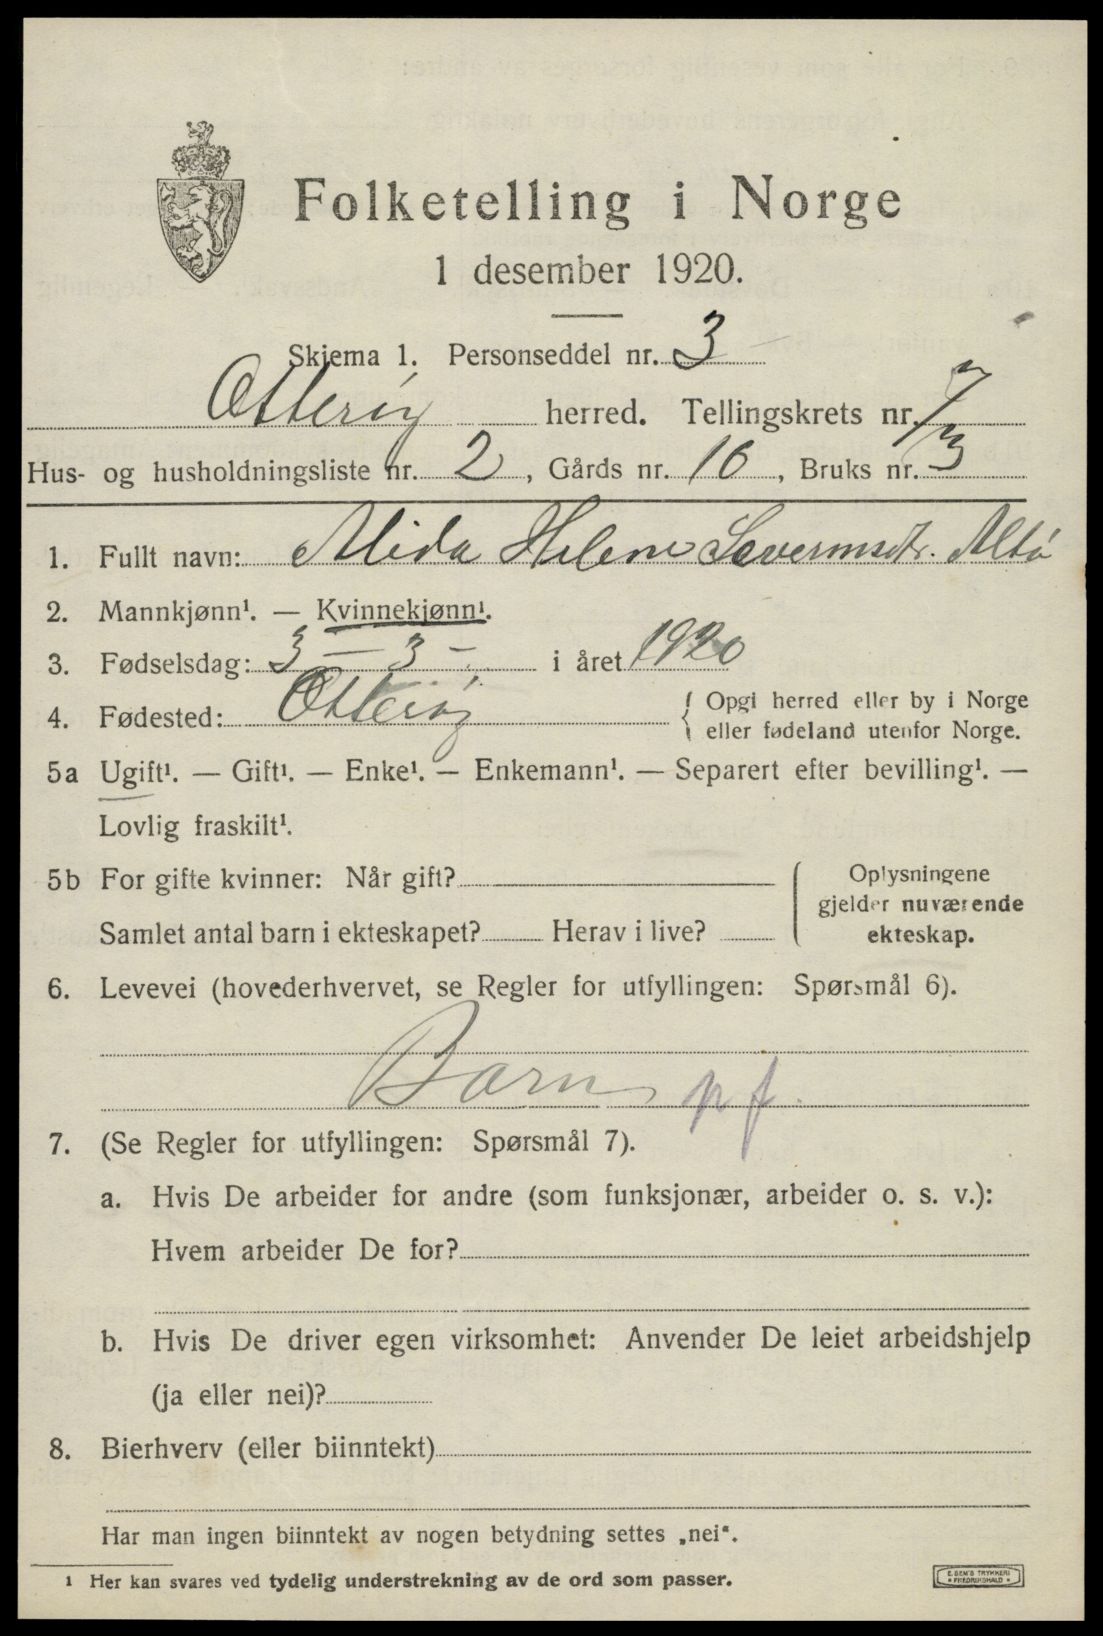 Folketelling i Norge
1 desember 1920.
Skjema 1. Personseddel nr. 3
Otterøy herred. Tellingskrets nr. 7
Hus- og husholdningsliste nr. 2, Gårds nr. 16, Bruks nr. 7/3
1. Fullt navn: Alida Helene Severinsdtr. Altø
2. Mannkjønn¹. — Kvinnekjønn¹.
3. Fødselsdag: 3 — 3 - i året 1920
4. Fødested: Otterøy { Opgi herred eller by i Norge
eller fødeland utenfor Norge.
5a Ugift¹. — Gift¹. — Enke¹. — Enkemann¹. — Separert efter bevilling¹. —
Lovlig fraskilt¹.
5b For gifte kvinner: Når gift?
Samlet antal barn i ekteskapet? Herav i live?
Oplysningene
gjelder nuværende
ekteskap.
6. Levevei (hovederhvervet, se Regler for utfyllingen: Spørsmål 6).
Barn pf.
7. (Se Regler for utfyllingen: Spørsmål 7).
a. Hvis De arbeider for andre (som funksjonær, arbeider o. s. v.):
Hvem arbeider De for?
b. Hvis De driver egen virksomhet: Anvender De leiet arbeidshjelp
(ja eller nei)?
8. Bierhverv (eller biinntekt)
Har man ingen biinntekt av nogen betydning settes „nei“.
¹ Her kan svares ved tydelig understrekning av de ord som passer.
E. SEM'S TRYKKERI
FREDRIKSHALD